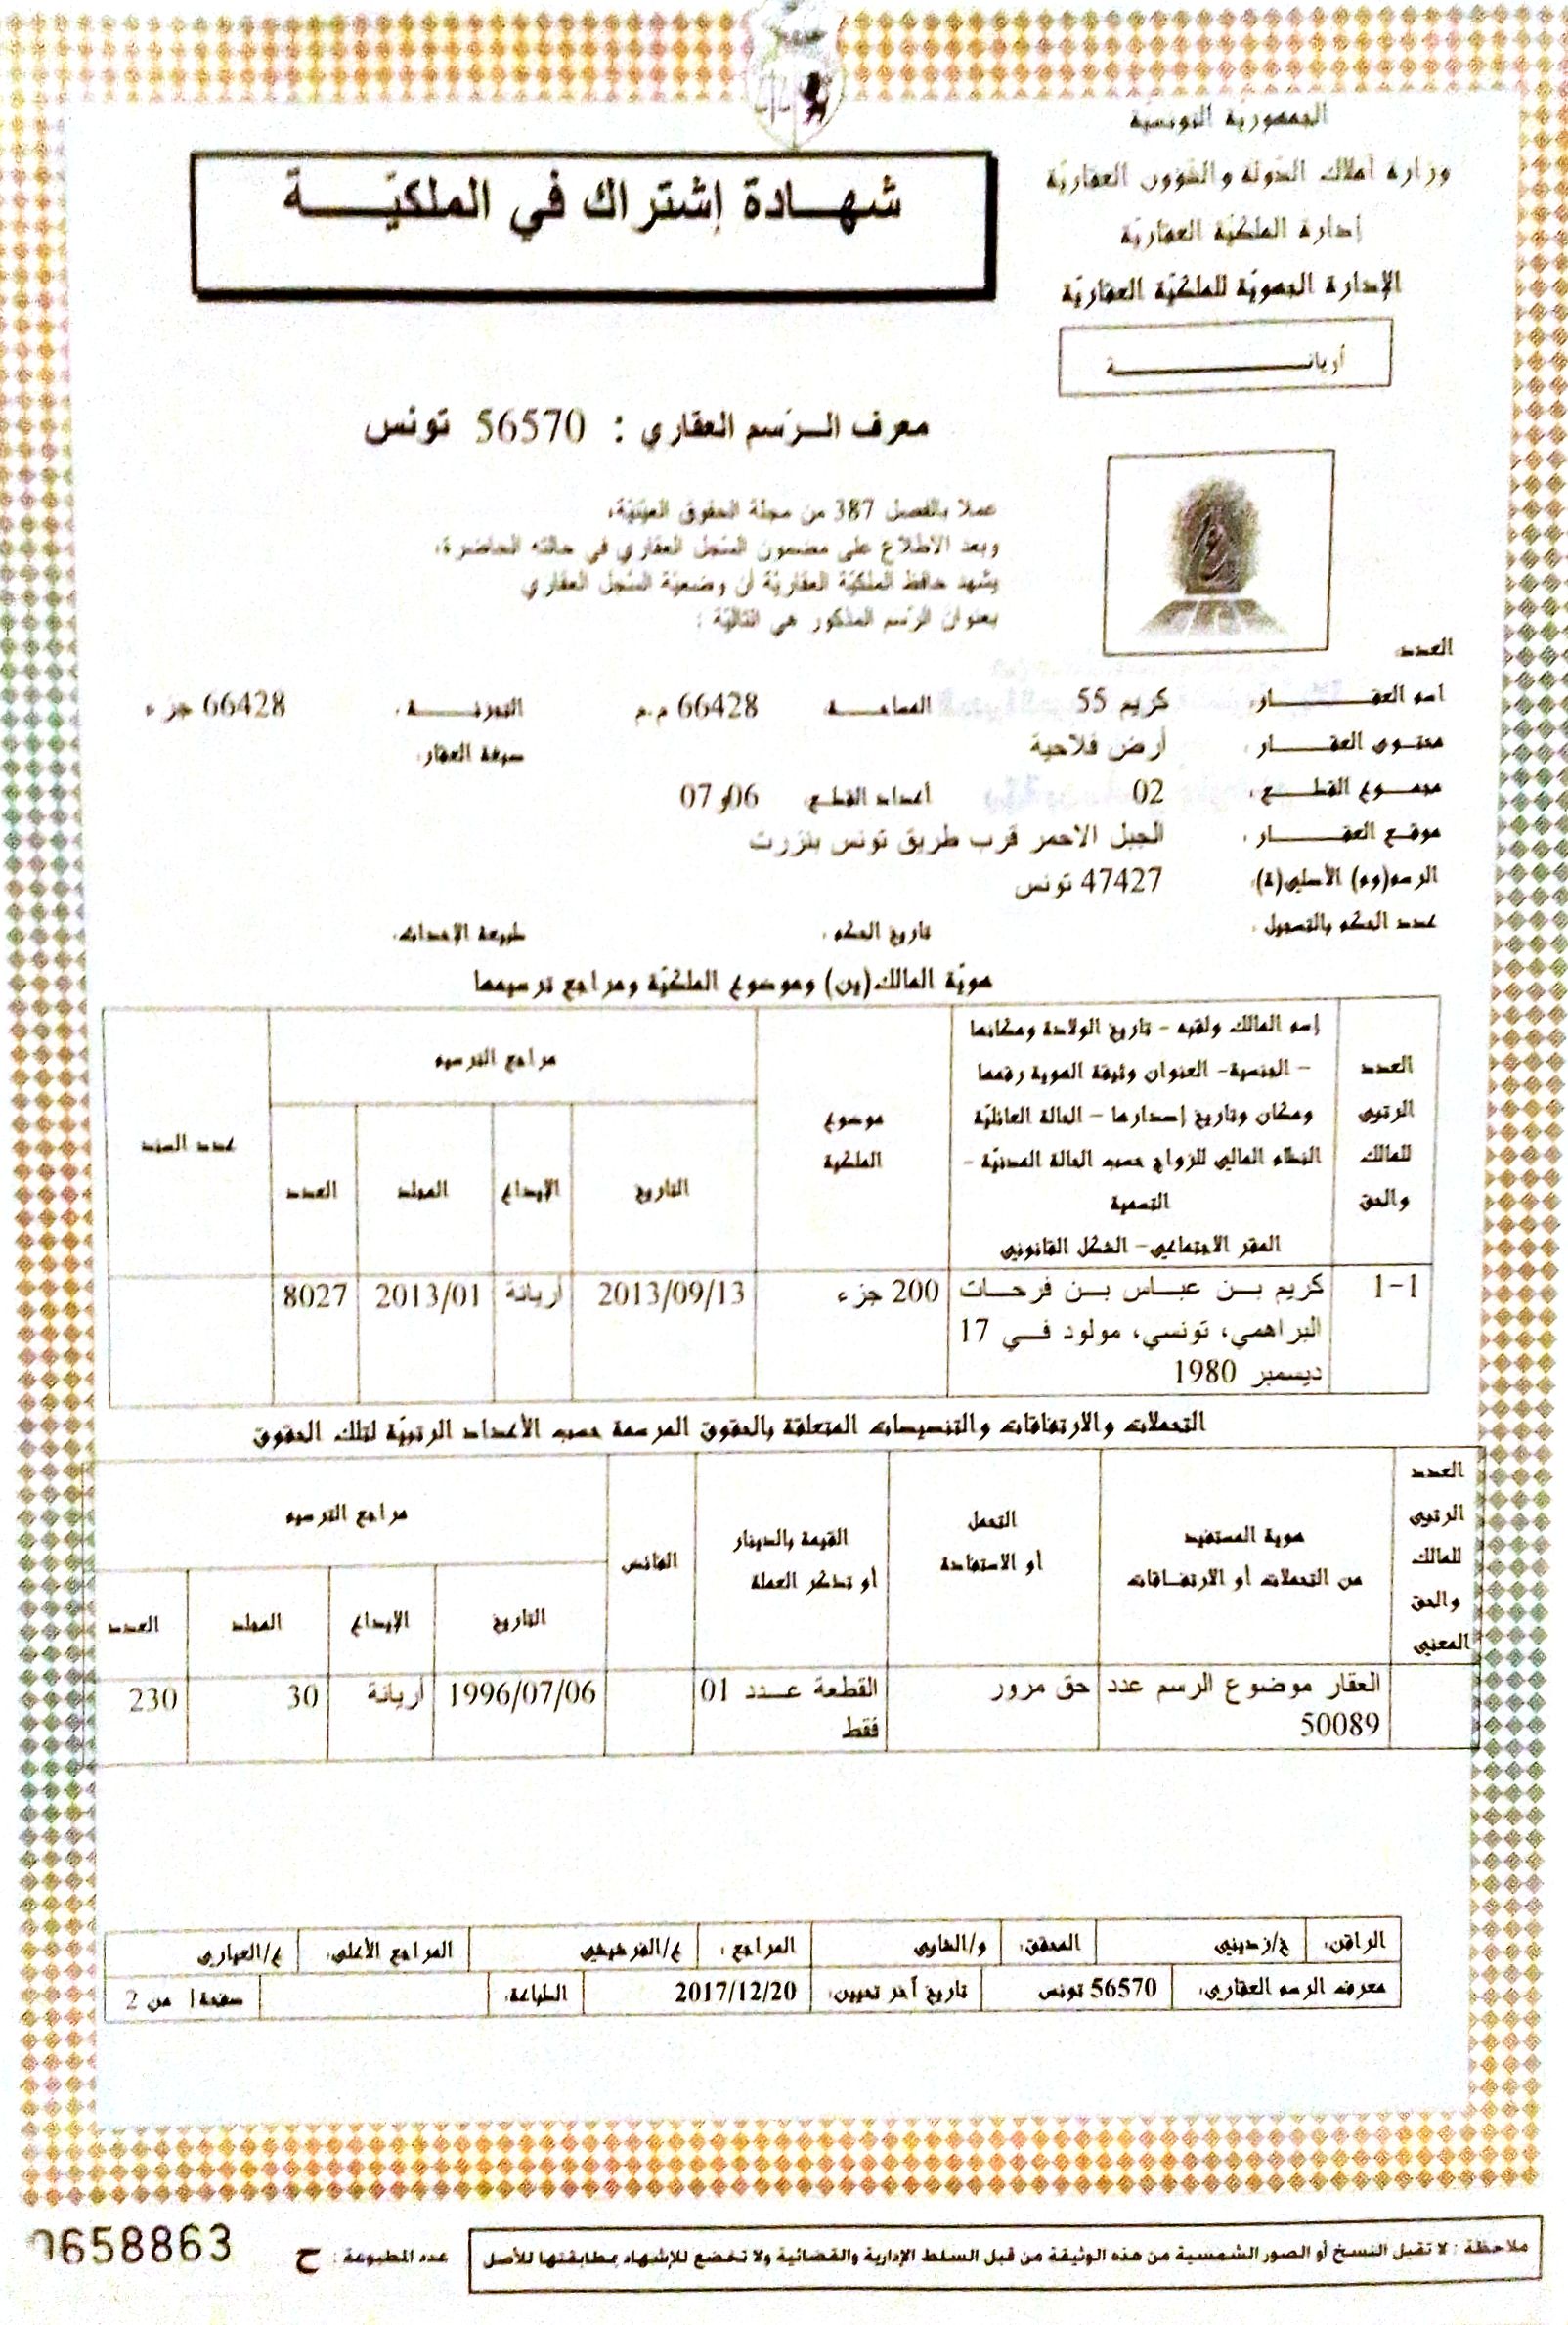 الجمهورية التونسية
وزارة أملاك الدولة والشؤون العقارية
إدارة الملكية العقارية
الإدارة الجهوية للملكية العقارية
أريانــــــة
شهـــادة إشتراك في الملكيّــــة
معرف الـرّسم العقاري : 56570 تونس
عملا بالفصل 387 من مجلة الحقوق العينية،
وبعد الاطلاع على مضمون السّجل العقاري في حالته الحاضرة،
يشهد حافظ الملكيّة العقاريّة أن وضعيّة السّجل العقاري
بعنوان الرّسم المذكور هي التاليّة :
العدد:
اسم العقــــار: كريم 55 المساحــة: 66428 م.م التجزئــة: 66428 جزء
محتوى العقــــار : أرض فلاحية صبغة العقار:
مجمـوع القطــع : 02 أعداد القطـع: 06و 07
موقع العقــــار : الجبل الاحمر قرب طريق تونس بنزرت
الرسم(وم) الأصلي(ة): 47427 تونس
عدد الحكم بالتسجيل : تاريخ الحكم : طبيعة الإحداث:
هويّة المالك(ين) وموضوع الملكيّة ومراجع ترسيمها
العدد الرتبي للمالك والحق
إسم المالك ولقبه - تاريخ الولادة ومكانها
- الجنسية- العنوان وثيقة الهوية رقمها
ومكان وتاريخ إصدارها - الحالة العائليّة
النظام المالي للزواج حسب الحالة المدنيّة -
التسمية
المقر الاجتماعي- الشكل القانوني
موضوع الملكية
مراجع الترسيم
التاريخ الإيداع المجلد العدد
عدد السند
1-1 كريم بــن عبــاس بــن فرحــات 200 جزء 2013/09/13 أريانة 2013/01 8027
البراهمي، تونسي، مولود فــي 17
ديسمبر 1980
التحملات والارتفاقات والتنصيصات المتعلقة بالحقوق المرسمة حسب الأعداد الرتبيّة لتلك الحقوق
العدد الرتبي للمالك والحق المعني
هوية المستفيد
من التحملات أو الارتفـاقات
التحمل
أو الاستفادة
القيمة بالدينار
أو تذكر العملة
الفائض
مراجع الترسيم
التاريخ الإيداع المجلد العدد
العقار موضوع الرسم عدد حق مرور القطعة عــدد 01 1996/07/06 أريانة 30 230
50089 فقط
الراقن: المحقق: و/الشاوي المراجع : المراجع الأعلى: ع/العياري
معرف الرسم العقاري: 56570 تونس تاريخ آخر تحيين: 2017/12/20 الطباعة: صفحة1 من 2
ملاحظة : لا تقبل النسخ أو الصور الشمسية من هذه الوثيقة من قبل السلط الإدارية والقضائية ولا تخضع للإشهاد بمطابقتها للأصل
عدد المطبوعة : ح 0658863